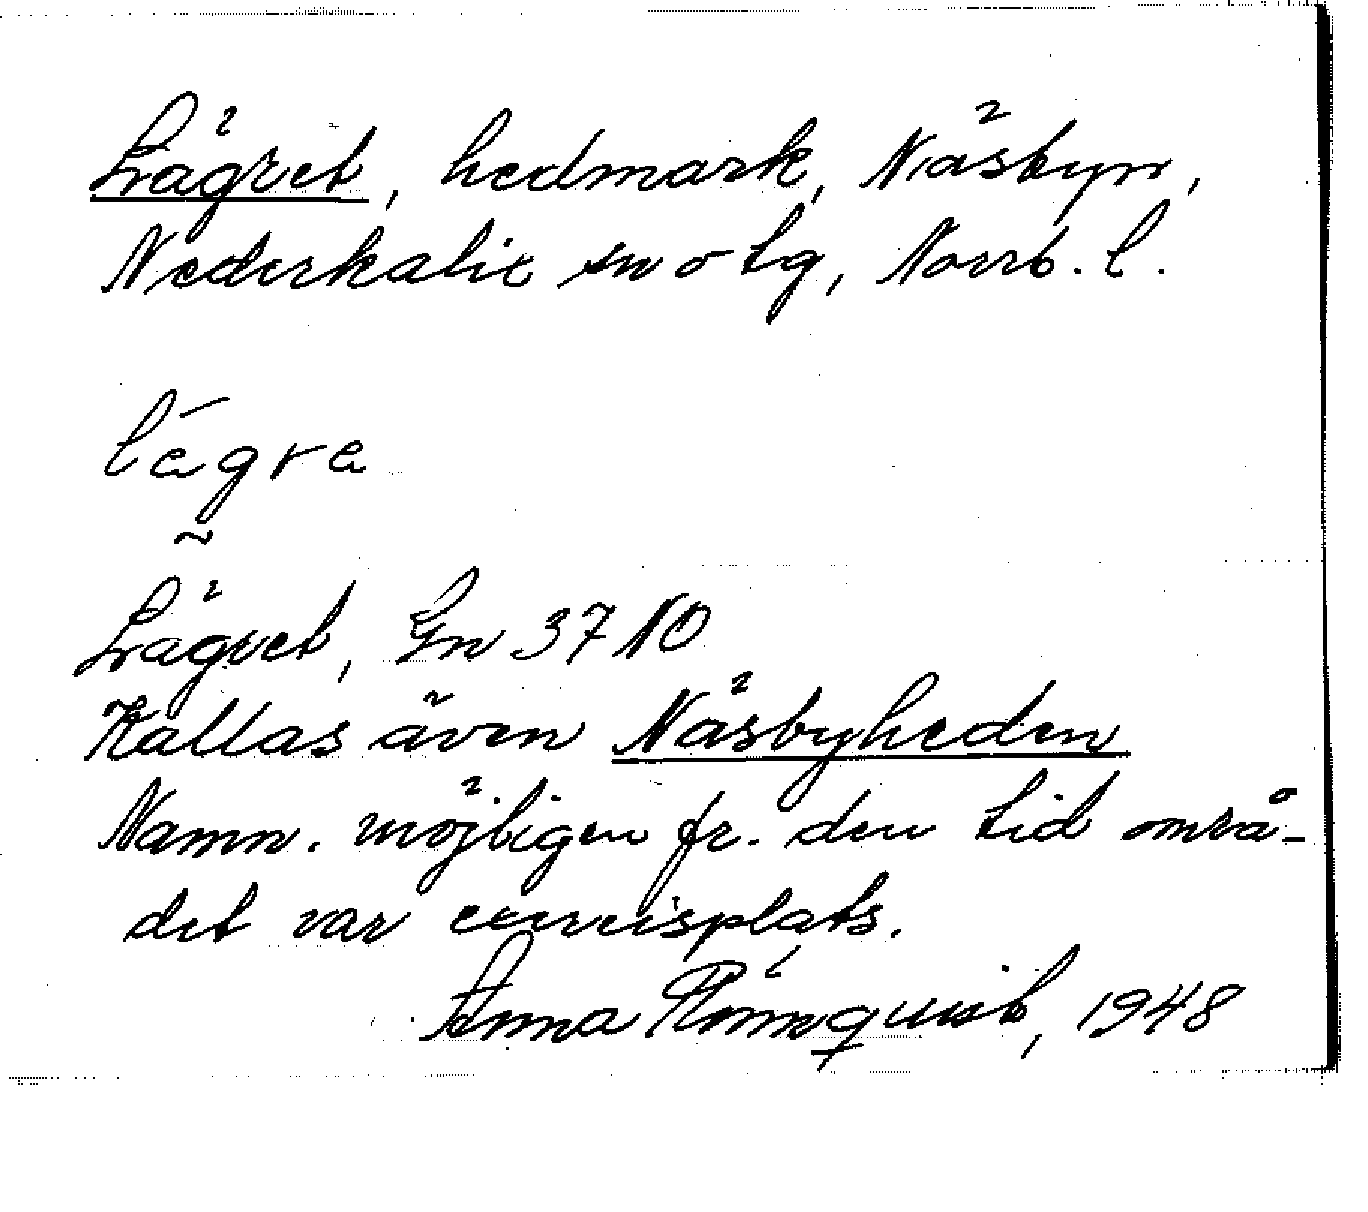 Lägret, hedmark, Näsbyn,
Nederkalix sn o tg, Norrb. l.
lägra
Lägret, Gn 37 NO
Kallas även Näsbyheden
Namn. möjligen fr. den tid områ-
det var exercisplats.
Anna Römquist, 1948